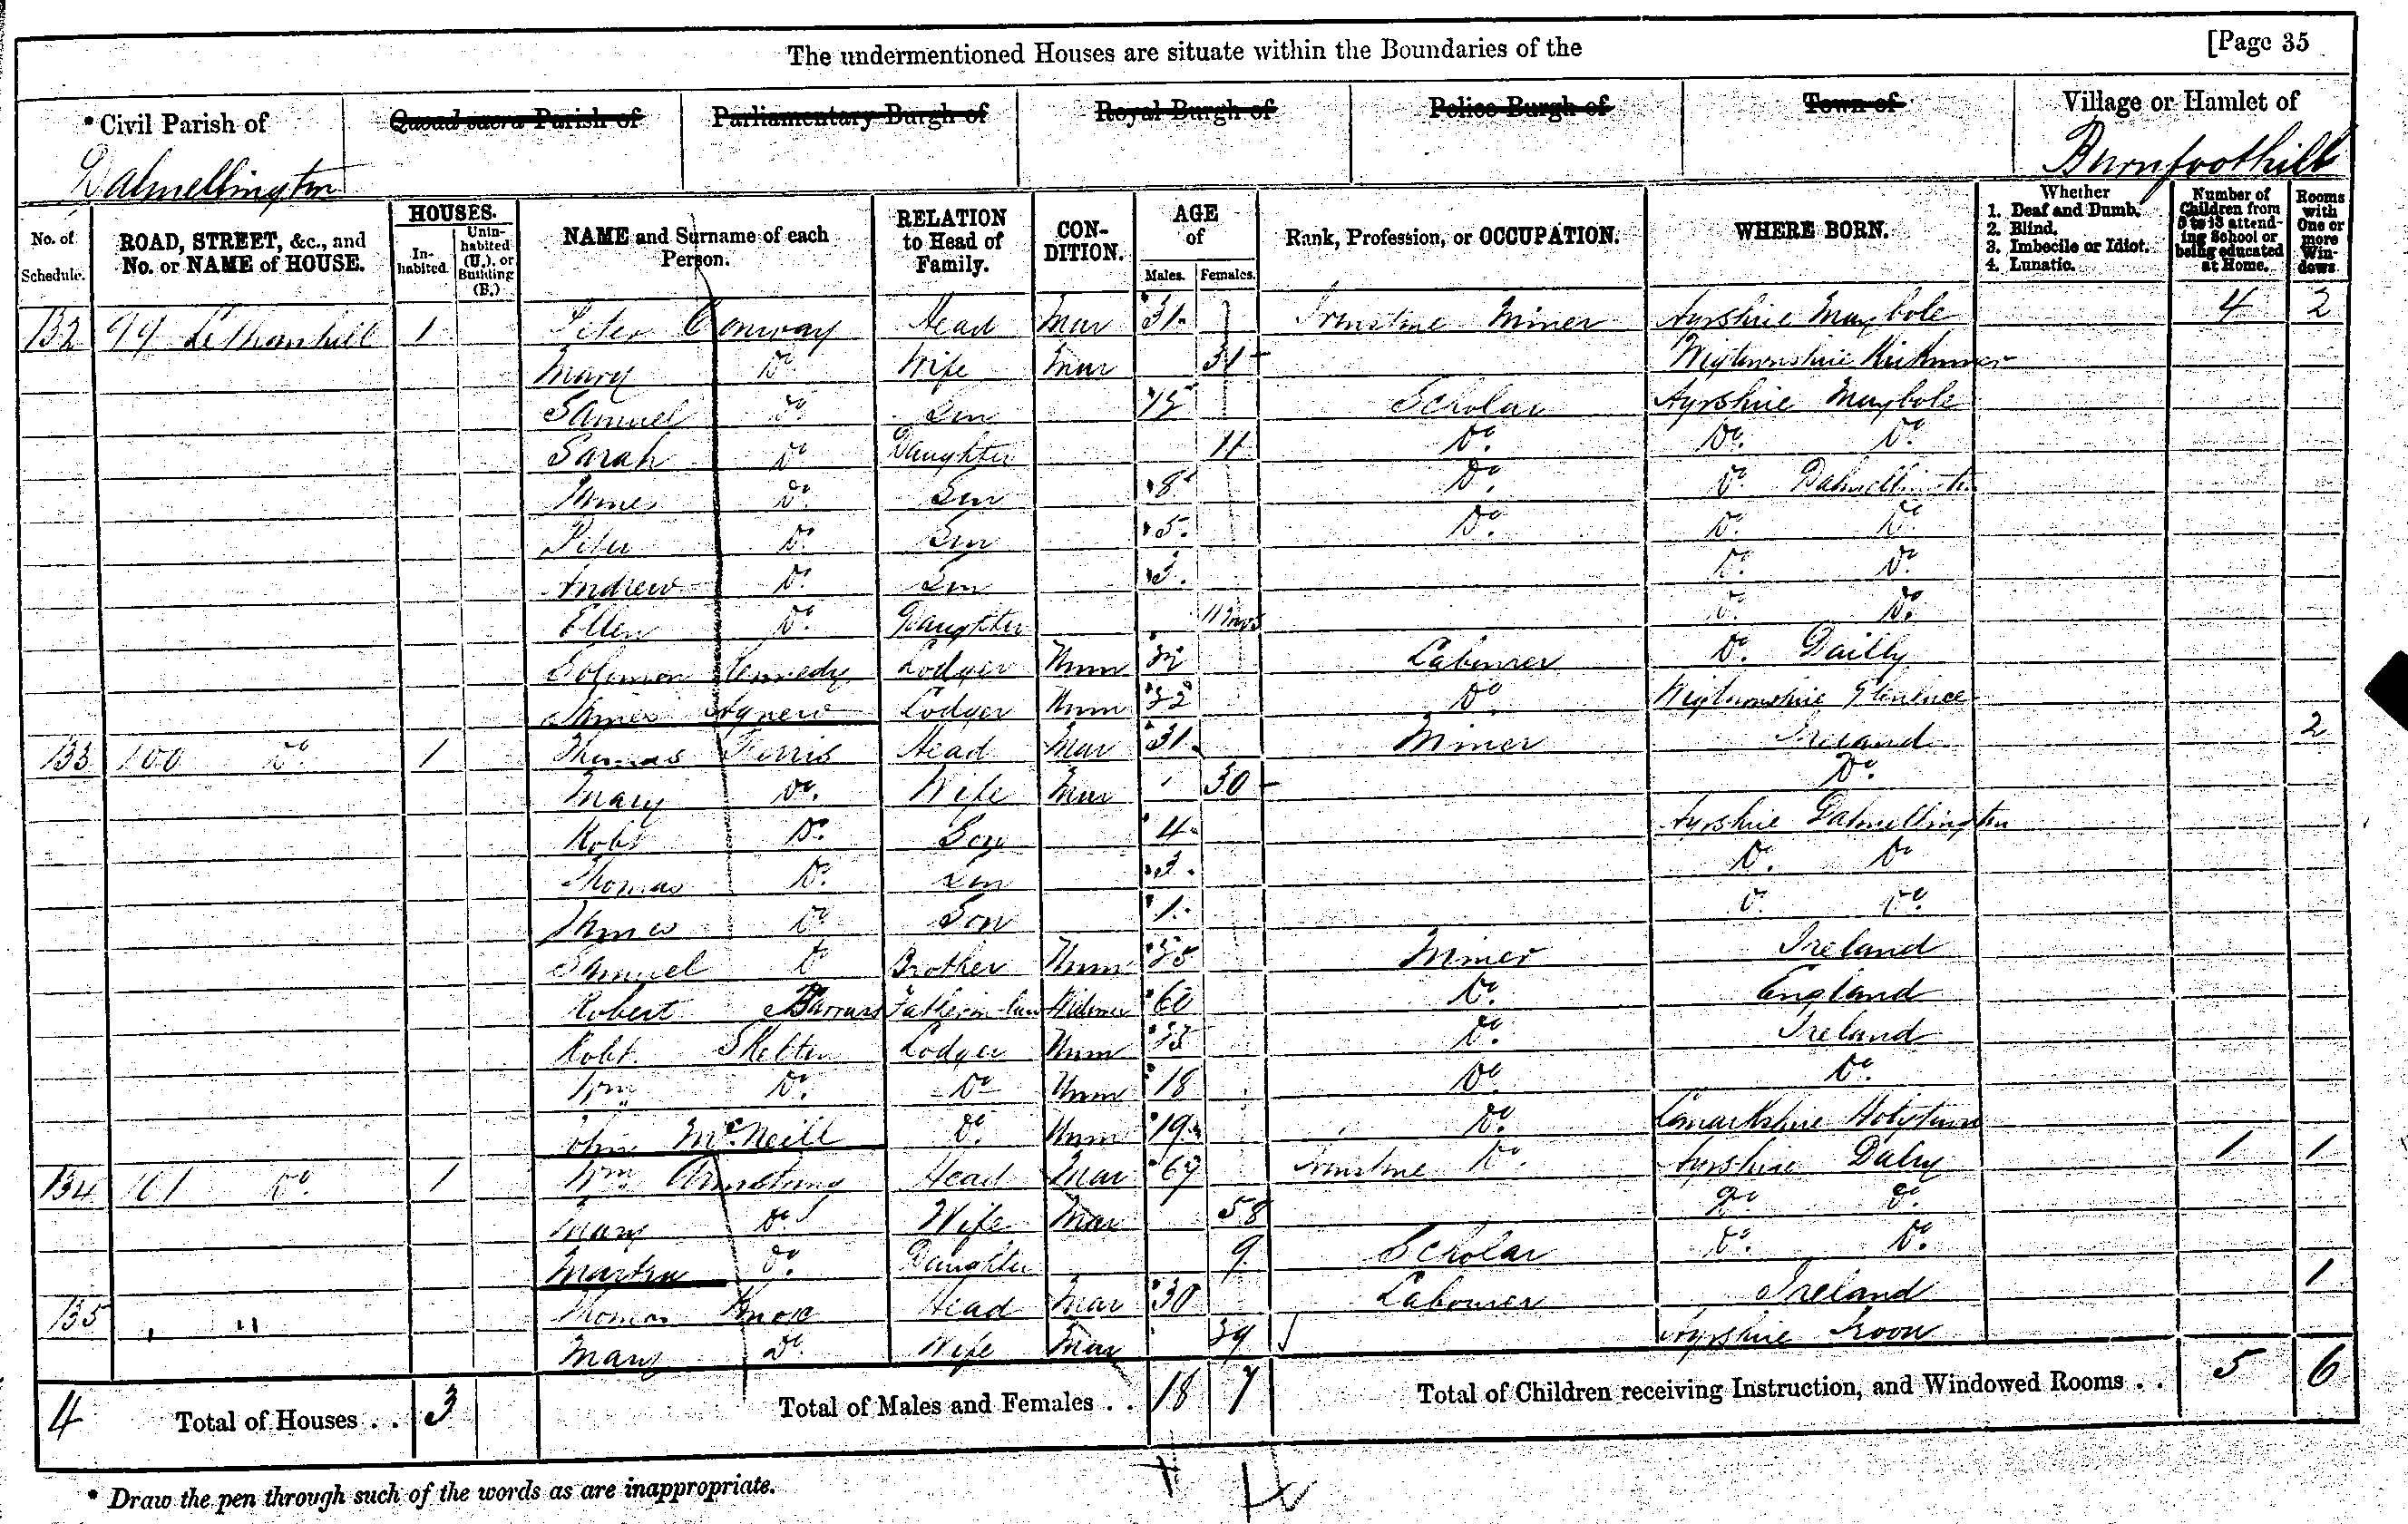 The undermentioned Houses are situate within the Boundaries of the [Page 35
*Civil Parish of Quoad sacra Parish of Parliamentary Burgh of Royal Burgh of Police Burgh of Town of Village or Hamlet of
Dalmellington Burnfoothill
No. of Schedule. ROAD, STREET, &c., and No. or NAME of HOUSE. HOUSES. In-habited. Unin-habited (U.), or Building (B.) NAME and Surname of each Person. RELATION to Head of Family. CON-DITION. AGE of Males. Females. Rank, Profession, or OCCUPATION. WHERE BORN. Whether 1. Deaf and Dumb. 2. Blind. 3. Imbecile or Idiot. 4. Lunatic. Number of Children from 5 to 13 attend-ing School or being educated at Home. Rooms with One or more Win-dows.
132 99 Lethanhill 1 Peter Conway Head Mar 31 Ironstone Miner Ayrshire Maybole 4 2
Mary Do Wife Mar 31 Wigtownshire Kirkinner
Samuel Do Son Scholar Ayrshire Maybole
Sarah Do Daughter 11 Do. Do. Do
James Do. Son 8 Do. Do. Dalmellington
Peter Do. Son 5 Do. Do. Do.
Andrew Do. Son 3 Do. Do.
Ellen Do. Daughter 11 mos Do. Do.
Solomon Kennedy Lodger Unm Labourer Do. Dailly
James Agnew Lodger Unm Do. Wigtownshire Glenluce
133 100 Do. 1 Thomas Ferris Head Mar 31 Miner Ireland 2
Mary Do. Wife Mar 30 Do.
Robt Do. Son 4 Ayrshire Dalmellington
Thomas Do. Son 3 Do. Do
James Do Son 1 Do. Do.
Samuel Do Brother Unm Miner Ireland
Robert Father-in-law Widower 60 Do. England
Robt. Lodger Unm Do. Ireland
Wm Do. Do Unm 18 Do. Do.
John McNeill Do. Unm 19 Do. Lanarkshire Holytown
134 101 Do. 1 Wm Armstrong Head Mar 67 Ironstone Do. Ayrshire Dalry 1 1
Mary Do Wife Mar 58 Do. Do.
Martha Do. Daughter 9 Scholar Do. Do.
135 " " Thomas Knox Head Mar 30 Labourer Ireland 1
Mary Do. Wife Mar 39 Ayrshire Troon
4 Total of Houses . . 3 Total of Males and Females . . 18 7 Total of Children receiving Instruction, and Windowed Rooms . . 5 6
* Draw the pen through such of the words as are inappropriate.